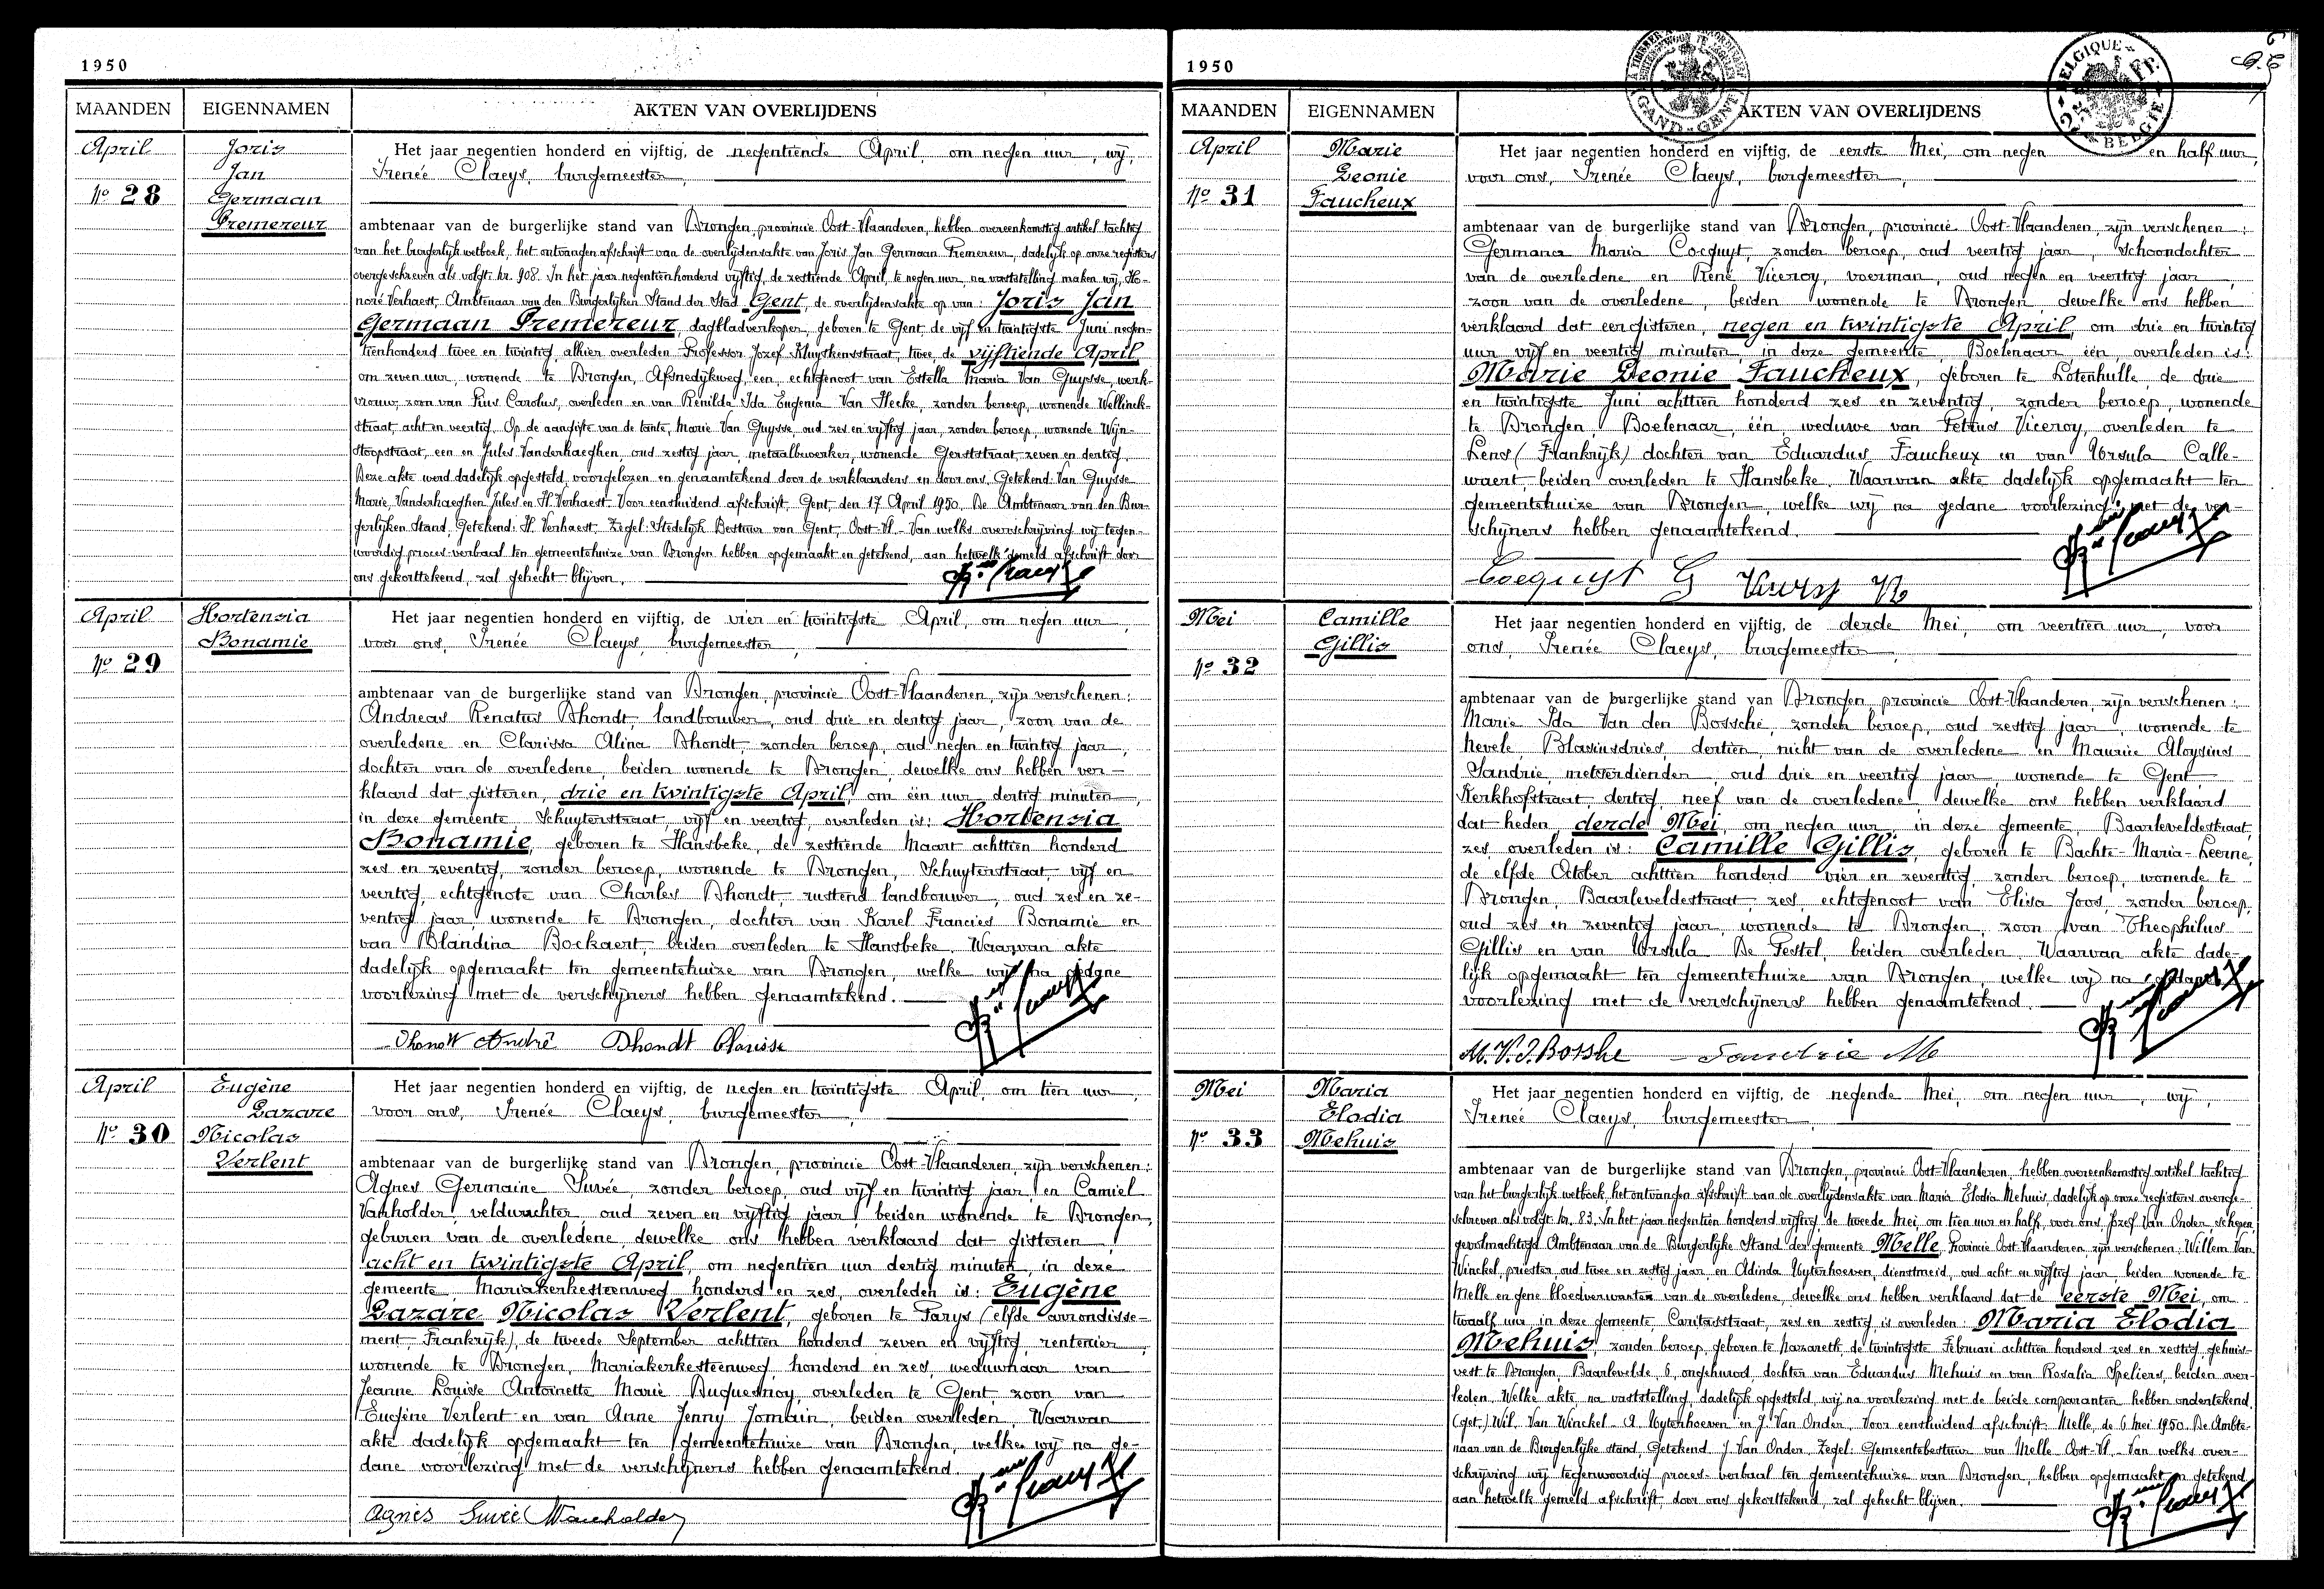 1950
MAANDEN EIGENNAMEN AKTEN VAN OVERLIJDENS
April
Nº 28
Joris
Jan
Germaan
Premereur
Het jaar negentien honderd en vijftig, de negentiende April, om negen uur, wij,
Irenée Claeys, burgemeester,
ambtenaar van de burgerlijke stand van Drongen, provincie Oost-Vlaanderen, hebben overeenkomstig artikel tachtig
van het burgerlijk wetboek, het ontvangen afschrift van de overlijdensakte van Joris Jan Germaan Premereur, dadelijk op onze registers
overgeschreven als volgt: Nr. 908. In het jaar negentienhonderd vijftig, de zestiende April, te negen uur, na vaststelling maken wij, Ho-
noré Verhaest, Ambtenaar van den Burgerlijken Stand der Stad Gent, de overlijdensakte op van: Joris Jan
Germaan Premereur, dagbladverkoper, geboren te Gent, de vijf en twintigste Juni negen-
tienhonderd twee en twintig, alhier overleden Professor Jozef Kluyskensstraat, twee, de vijftiende April
om zeven uur, wonende te Drongen, Afsnedijkweg, een, echtgenoot van Estella Maria Van Guysse, werk-
vrouw, zoon van Pius Carolus, overleden en van Renilda Ida Eugenia Van Hecke, zonder beroep, wonende Wellinck-
straat, acht en veertig. Op de aangifte van de tante, Marie Van Guysse, oud zes en vijftig jaar, zonder beroep, wonende Wijn-
stoopstraat, een en Jules Vanderhaeghen, oud zestig jaar, metaalbewerker, wonende Gerststraat, zeven en dertig.
Deze akte werd dadelijk opgesteld, voorgelezen en genaamtekend door de verklaarders en door ons. Getekend: Van Guysse
Marie, Vanderhaeghen Jules en H. Verhaest. Voor eensluidend afschrift, Gent, den 17 April 1950. De Ambtenaar van den Bur-
gerlijken Stand. Getekend: H. Verhaest. Zegel: Stedelijk Bestuur van Gent, Oost-Vl. Van welks overschrijving wij tegen-
woordig proces-verbaal ten gemeentehuize van Drongen hebben opgemaakt en getekend, aan hetwelk gemeld afschrift door
ons gekorttekend, zal gehecht blijven.
April
Nº 29
Hortensia
Bonamie
Het jaar negentien honderd en vijftig, de vier en twintigste April, om negen uur,
voor ons, Irenée Claeys, burgemeester,
ambtenaar van de burgerlijke stand van Drongen, provincie Oost-Vlaanderen, zijn verschenen:
Andreas Renatus Dhondt, landbouwer, oud drie en dertig jaar, zoon van de
overledene en Clarissa Alina Dhondt, zonder beroep, oud negen en twintig jaar,
dochter van de overledene, beiden wonende te Drongen, dewelke ons hebben ver-
klaard dat gisteren, drie en twintigste April, om één uur dertig minuten,
in deze gemeente Schuyterstraat, vijf en veertig, overleden is: Hortensia
Bonamie, geboren te Hansbeke, de zestiende Maart achttien honderd
zes en zeventig, zonder beroep, wonende te Drongen, Schuyterstraat, vijf en
veertig, echtgenote van Charles Dhondt, rustend landbouwer, oud zes en ze-
ventig jaar, wonende te Drongen, dochter van Karel Francies Bonamie en
van Blandina Bockaert, beiden overleden te Hansbeke. Waarvan akte
dadelijk opgemaakt ten gemeentehuize van Drongen, welke wij na gedane
voorlezing met de verschijners hebben genaamtekend.
Dhondt André Dhondt Clarisse
April
Nº 30
Eugène
Lazare
Nicolas
Verlent
Het jaar negentien honderd en vijftig, de negen en twintigste April, om tien uur,
voor ons, Irenée Claeys, burgemeester,
ambtenaar van de burgerlijke stand van Drongen, provincie Oost-Vlaanderen, zijn verschenen:
Agnes Germaine Suvée, zonder beroep, oud vijf en twintig jaar, en Camiel
Vanholder, veldwachter oud zeven en vijftig jaar, beiden wonende te Drongen,
geburen van de overledene, dewelke ons hebben verklaard dat gisteren,
acht en twintigste April, om negentien uur dertig minuten, in deze
gemeente, Mariakerkesteenweg honderd en zes, overleden is: Eugène
Lazare Nicolas Verlent, geboren te Parys (elfde arrondisse-
ment, Frankrijk), de tweede September achttien honderd zeven en vijftig, rentenier,
wonende te Drongen, Mariakerkesteenweg, honderd en zes, weduwnaar van
Jeanne Louise Antoinette Marie Duquesnoy, overleden te Gent, zoon van
Eugène Verlent en van Anne Jenny Jomain, beiden overleden. Waarvan
akte dadelijk opgemaakt ten gemeentehuize van Drongen, welke wij na ge-
dane voorlezing met de verschijners hebben genaamtekend.
Agnès Suvée Vanholder
1950
GAND - GENT
BELGIQUE
BELGIE
MAANDEN EIGENNAMEN AKTEN VAN OVERLIJDENS
April
Nº 31
Marie
Leonie
Faucheux
Het jaar negentien honderd en vijftig, de eerste Mei, om negen en half uur,
voor ons, Irenée Claeys, burgemeester,
ambtenaar van de burgerlijke stand van Drongen, provincie Oost-Vlaanderen, zijn verschenen:
Germana Maria Cocquyt, zonder beroep, oud veertig jaar, schoondochter
van de overledene en René Viceroy, voerman, oud negen en veertig jaar,
zoon van de overledene, beiden wonende te Drongen, dewelke ons hebben
verklaard dat eergisteren, negen en twintigste April, om drie en twintig
uur vijf en veertig minuten, in deze gemeente, Boelenaar één, overleden is:
Marie Leonie Faucheux, geboren te Lotenhulle, de drie
en twintigste Juni achttien honderd zes en zeventig, zonder beroep, wonende
te Drongen, Boelenaar, één, weduwe van Petrus Viceroy, overleden te
Lens (Frankrijk) dochter van Eduardus Faucheux en van Ursula Calle-
waert, beiden overleden te Hansbeke. Waarvan akte dadelijk opgemaakt ten
gemeentehuize van Drongen, welke wij na gedane voorlezing met de ver-
schijners hebben genaamtekend.
Cocquyt G
Mei
Nº 32
Camille
Gillis
Het jaar negentien honderd en vijftig, de derde Mei, om veertien uur, voor
ons, Irenée Claeys, burgemeester,
ambtenaar van de burgerlijke stand van Drongen provincie Oost-Vlaanderen, zijn verschenen:
Marie Ida Van den Bossche, zonder beroep, oud zestig jaar, wonende te
Nevele, Blasiusdries, dertien, nicht van de overledene en Maurice Aloysius
Sandrie, metserdiender, oud drie en veertig jaar, wonende te Gent,
Kerkhofstraat, dertig, neef van de overledene, dewelke ons hebben verklaard
dat heden, derde Mei, om negen uur in deze gemeente, Baarleveldestraat,
zes, overleden is: Camille Gillis, geboren te Bachte-Maria-Leerne,
de elfde October achttien honderd vier en zeventig, zonder beroep, wonende te
Drongen, Baarleveldestraat, zes, echtgenoot van Elisa Joos, zonder beroep,
oud zes en zeventig jaar, wonende te Drongen, zoon van Theophilus
Gillis en van Ursula De Pestel, beiden overleden. Waarvan akte dade-
lijk opgemaakt ten gemeentehuize van Drongen, welke wij na gedane
voorlezing met de verschijners hebben genaamtekend.
M.V.D.Bosshe Sandrie M
Mei
Nº 33
Maria
Elodia
Mehuis
Het jaar negentien honderd en vijftig, de negende Mei, om negen uur, wij,
Irenée Claeys, burgemeester,
ambtenaar van de burgerlijke stand van Drongen, provincie Oost-Vlaanderen, hebben overeenkomstig artikel tachtig
van het burgerlijk wetboek, het ontvangen afschrift van de overlijdensakte van Maria Elodia Mehuis, dadelijk op onze registers overge-
schreven als volgt: Nr. 83. In het jaar negentien honderd vijftig, de tweede Mei, om tien uur en half, voor ons, Jozef Van Onder, schepen
gevolmachtigd Ambtenaar van de Burgerlijke Stand der gemeente Melle, Provincie Oost-Vlaanderen, zijn verschenen: Willem Van
Winckel, priester, oud twee en zestig jaar, en Adinda Uytenhoeven, dienstmeid, oud acht en vijftig jaar, beiden wonende te
Melle en gene bloedverwanten van de overledene, dewelke ons hebben verklaard dat de eerste Mei, om
twaalf uur, in deze gemeente Caritasstraat, zes en zestig, is overleden: Maria Elodia
Mehuis, zonder beroep, geboren te Nazareth, de twintigste Februari achttien honderd zes en zestig, gehuis-
vest te Drongen, Baarlevelde, 6, ongehuwd, dochter van Eduardus Mehuis en van Rosalia Speliers, beiden over-
leden. Welke akte, na vaststelling, dadelijk opgesteld, wij na voorlezing met de beide comparanten hebben ondertekend.
(get.) Wil. Van Winckel - A. Uytenhoeven en J. Van Onder. Voor eensluidend afschrift: Melle, de 6 Mei 1950. De Ambte-
naar van de Burgerlijke stand, Getekend J. Van Onder. Zegel: Gemeentebestuur van Melle Oost-Vl. Van welks over-
schrijving wij tegenwoordig proces-verbaal ten gemeentehuize van Drongen, hebben opgemaakt en getekend,
aan hetwelk gemeld afschrift, door ons gekorttekend, zal gehecht blijven.